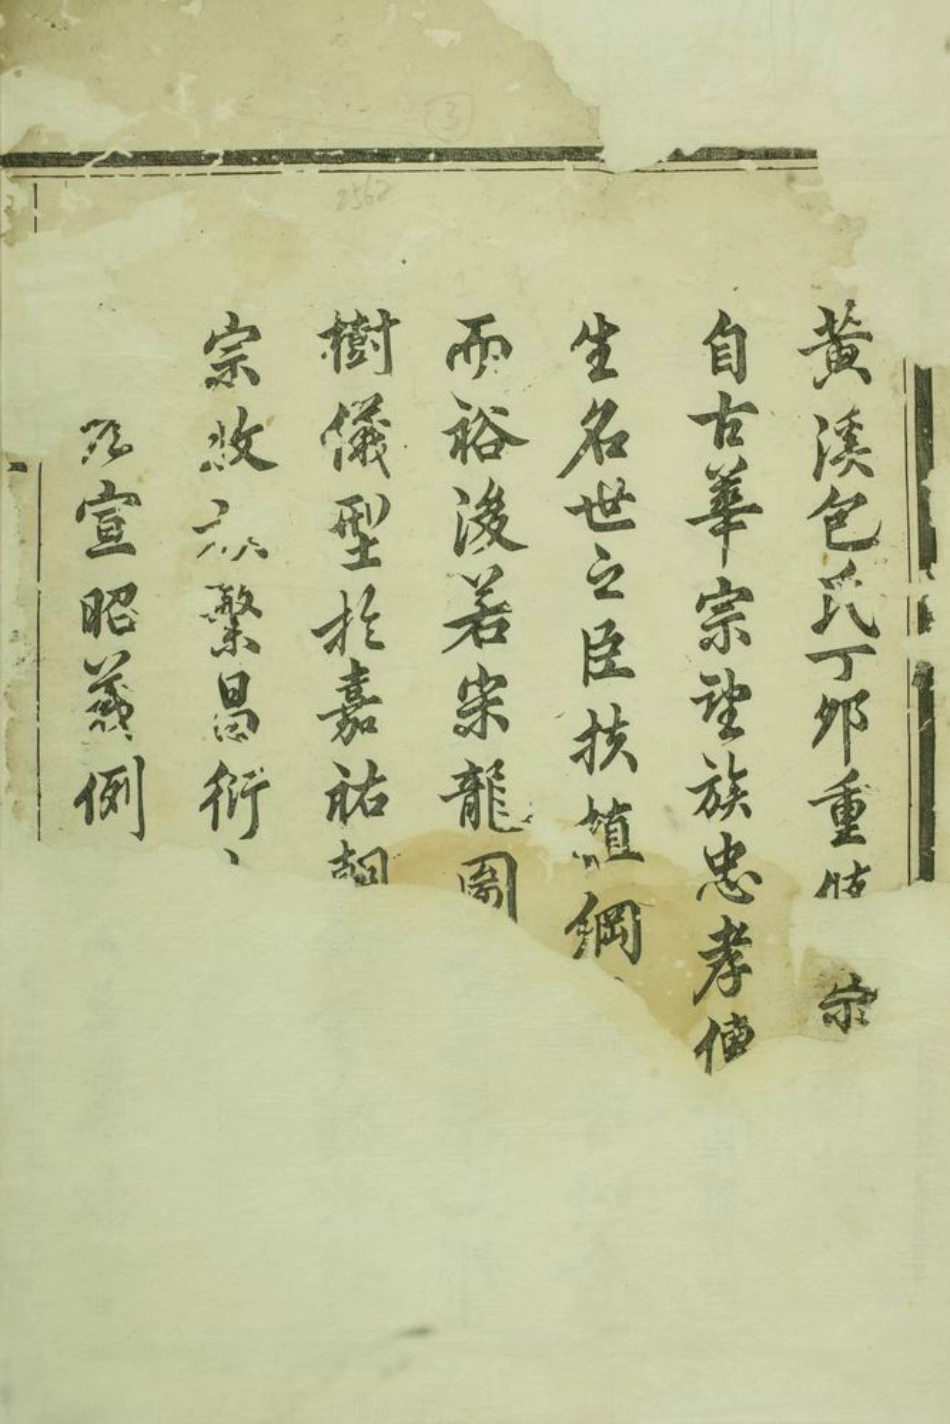 黃溪包氏丁卯重修宗
自古華宗望族忠孝傳
生名世之臣扶植綱
而裕後若宋龍圖
樹儀型於嘉祐
宗收族繁昌衍
宣昭義例
③
2562